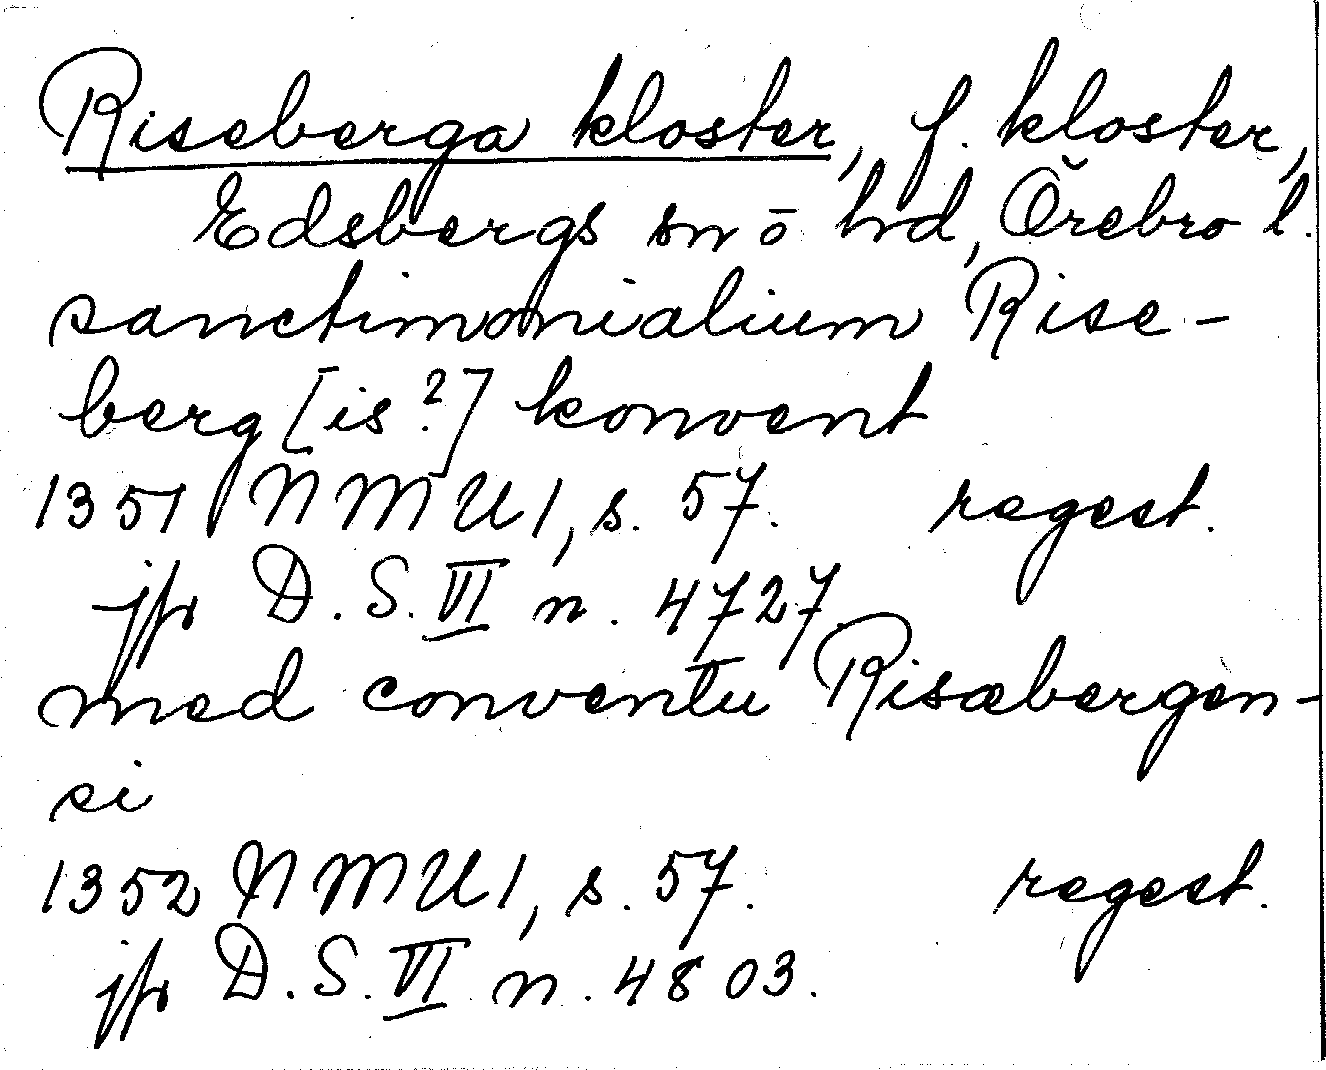 Riseberga kloster, f. kloster,
Edsbergs sn ō hd, Örebro l.
sanctimonialium Rise-
berg [is?] konvent
1351 NMU 1, s. 57. regest.
jfr D. S. VI n. 4727.
med conventu Risæbergen-
si
1352 NMU 1, s. 57. regest.
jfr D. S. VI n. 4803.